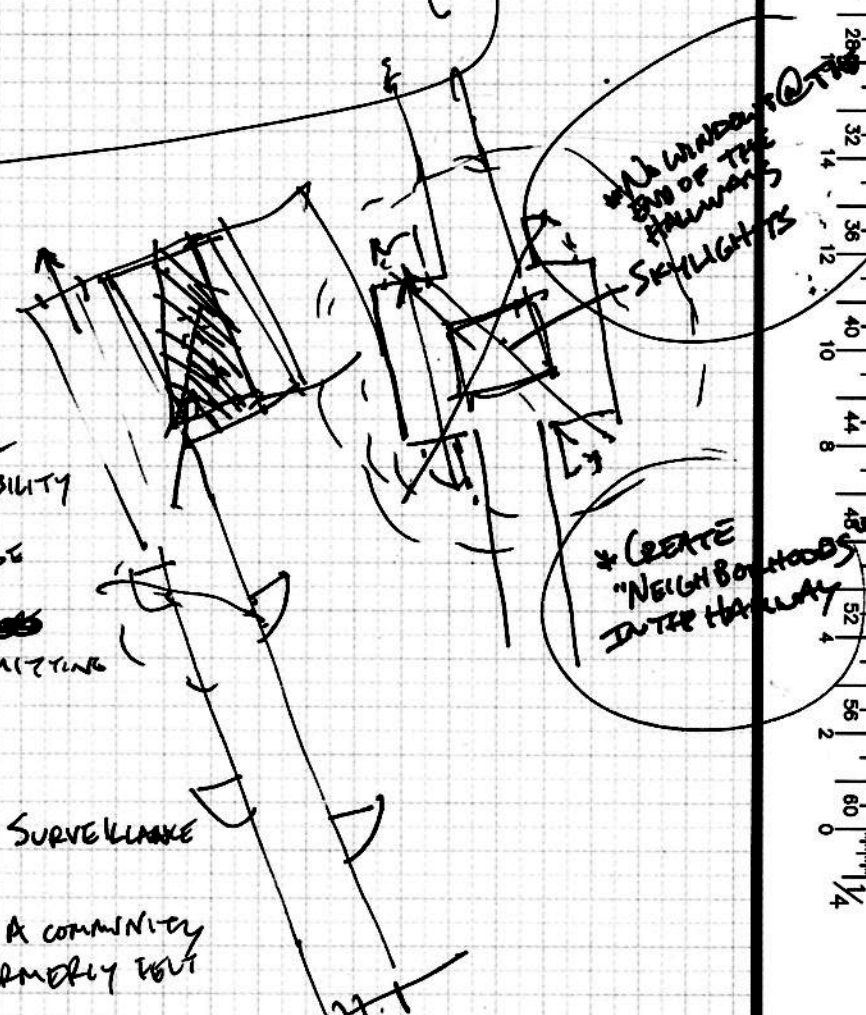 * NO WINDOWS @ THE
END OF THE
HALLWAYS
SKYLIGHTS
BILITY
* CREATE
"NEIGHBORHOODS
IN THE HALLWAY
MITTING
SURVEILLANCE
A COMMUNITY
RMERLY FELT
28
32
14
36
12
40
10
44
8
48
52
4
56
2
60
0
1/4